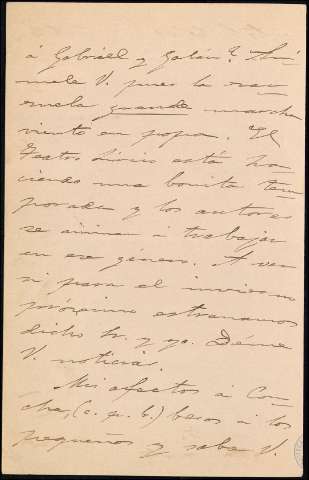 á Gabriel y Galán? Aní
mele V. pues la zar
zuela grande marcha
viento en popa. El
Teatro Lírico está ha
ciendo una bonita tem
porada y los autores
se animan á trabajar
en ese género. A ver
si para el invierno
próximo estrenamos
dicho Sr. y yo. Déme
V. noticias.
Mis afectos á Con
cha, (c. p. b.) besos á los
pequeños y sabe V.